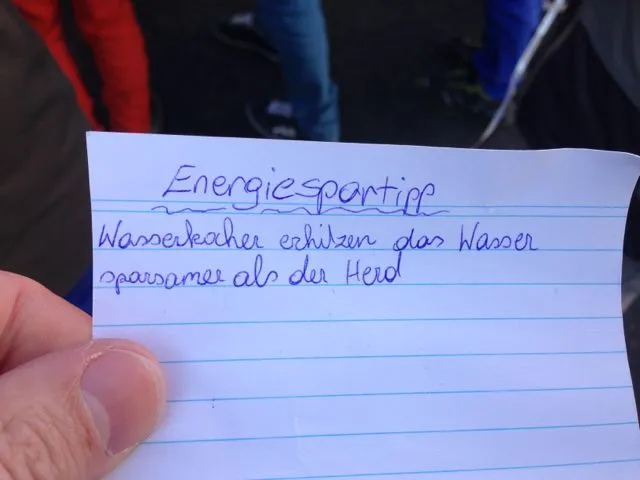 Energiespartipp
Wasserkocher erhitzen das Wasser
sparsamer als der Herd